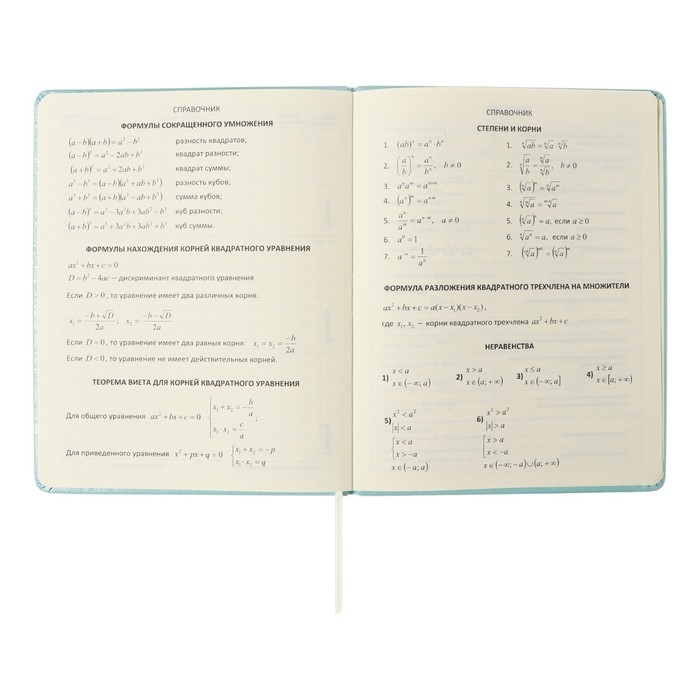 СПРАВОЧНИК
ФОРМУЛЫ СОКРАЩЕННОГО УМНОЖЕНИЯ
(a−b)(a+b)=a²−b² разность квадратов;
(a−b)²=a²−2ab+b² квадрат разности;
(a+b)²=a²+2ab+b² квадрат суммы;
a³−b³=(a−b)(a²+ab+b²) разность кубов;
a³+b³=(a+b)(a²−ab+b²) сумма кубов;
(a−b)³=a³−3a²b+3ab²−b³ куб разности;
(a+b)³=a³+3a²b+3ab²+b³ куб суммы.
ФОРМУЛЫ НАХОЖДЕНИЯ КОРНЕЙ КВАДРАТНОГО УРАВНЕНИЯ
ax²+bx+c=0
D=b²−4ac − дискриминант квадратного уравнения
Если D>0, то уравнение имеет два различных корня:
x₁=(−b+√D)/2a; x₂=(−b−√D)/2a
Если D=0, то уравнение имеет два равных корня: x₁=x₂=−b/2a
Если D<0, то уравнение не имеет действительных корней.
ТЕОРЕМА ВИЕТА ДЛЯ КОРНЕЙ КВАДРАТНОГО УРАВНЕНИЯ
Для общего уравнения ax²+bx+c=0 {x₁+x₂=−b/a, x₁·x₂=c/a;
Для приведенного уравнения x²+px+q=0 {x₁+x₂=−p x₁·x₂=q
СПРАВОЧНИК
СТЕПЕНИ И КОРНИ
1. (ab)ⁿ=aⁿ·bⁿ 1. ⁿ√ab=ⁿ√a·ⁿ√b
2. (a/b)ⁿ=aⁿ/bⁿ, b≠0 2. ⁿ√(a/b)=ⁿ√a/ⁿ√b, b≠0
3. aⁿaᵐ=aⁿ⁺ᵐ 3. (ⁿ√a)ᵐ=ⁿ√aᵐ
4. (aⁿ)ᵐ=aⁿ·ᵐ 4. ⁿ√ᵐ√a=ᵐⁿ√a
5. aⁿ/aᵐ=aⁿ⁻ᵐ, a≠0 5. (ⁿ√a)ⁿ=a, если a≥0
6. a⁰=1 6. ⁿ√aⁿ=a, если a≥0
7. a⁻ⁿ=1/aⁿ
ФОРМУЛА РАЗЛОЖЕНИЯ КВАДРАТНОГО ТРЕХЧЛЕНА НА МНОЖИТЕЛИ
ax²+bx+c=a(x−x₁)(x−x₂),
где x₁,x₂ − корни квадратного трехчлена ax²+bx+c
НЕРАВЕНСТВА
1) x<a x∈(−∞;a)
2) x>a x∈(a;+∞)
3) x≤a x∈(−∞;a]
4) x≥a x∈[a;+∞)
5) x²<a²
|x|<a
{x<a
x>−a
x∈(−a;a)
6) x²>a²
|x|>a
[x>a
x<−a
x∈(−∞;−a)∪(a;+∞)